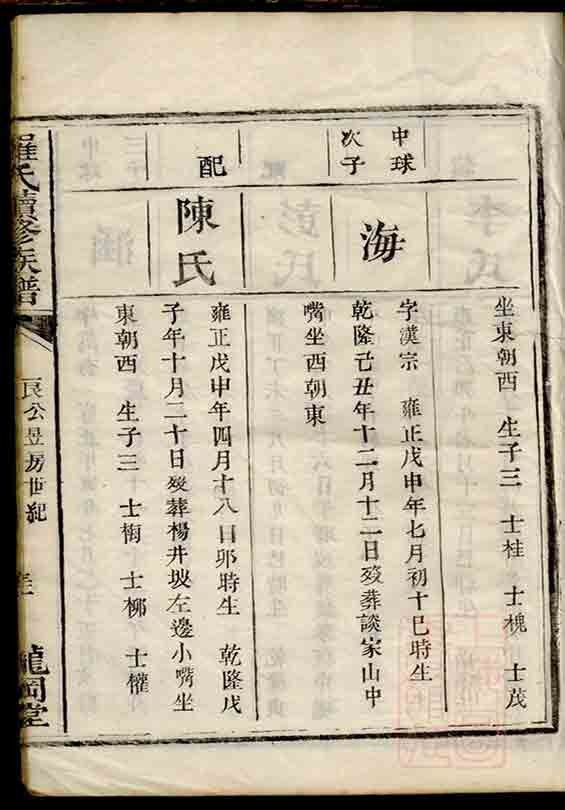 坐東朝西 生子三 士桂 士槐 士茂
中球
次子
海
字漢宗 雍正戊申年七月初十巳時生
乾隆己丑年十二月十二日歿葬談家山中
嘴坐西朝東
配
陳氏
雍正戊申年四月十八日卯時生 乾隆戊
子年十月二十日歿葬楊井坡左邊小嘴坐
東朝西 生子三 士梅 士柳 士權
羅氏續修族譜
良公昱房世紀
龍岡堂